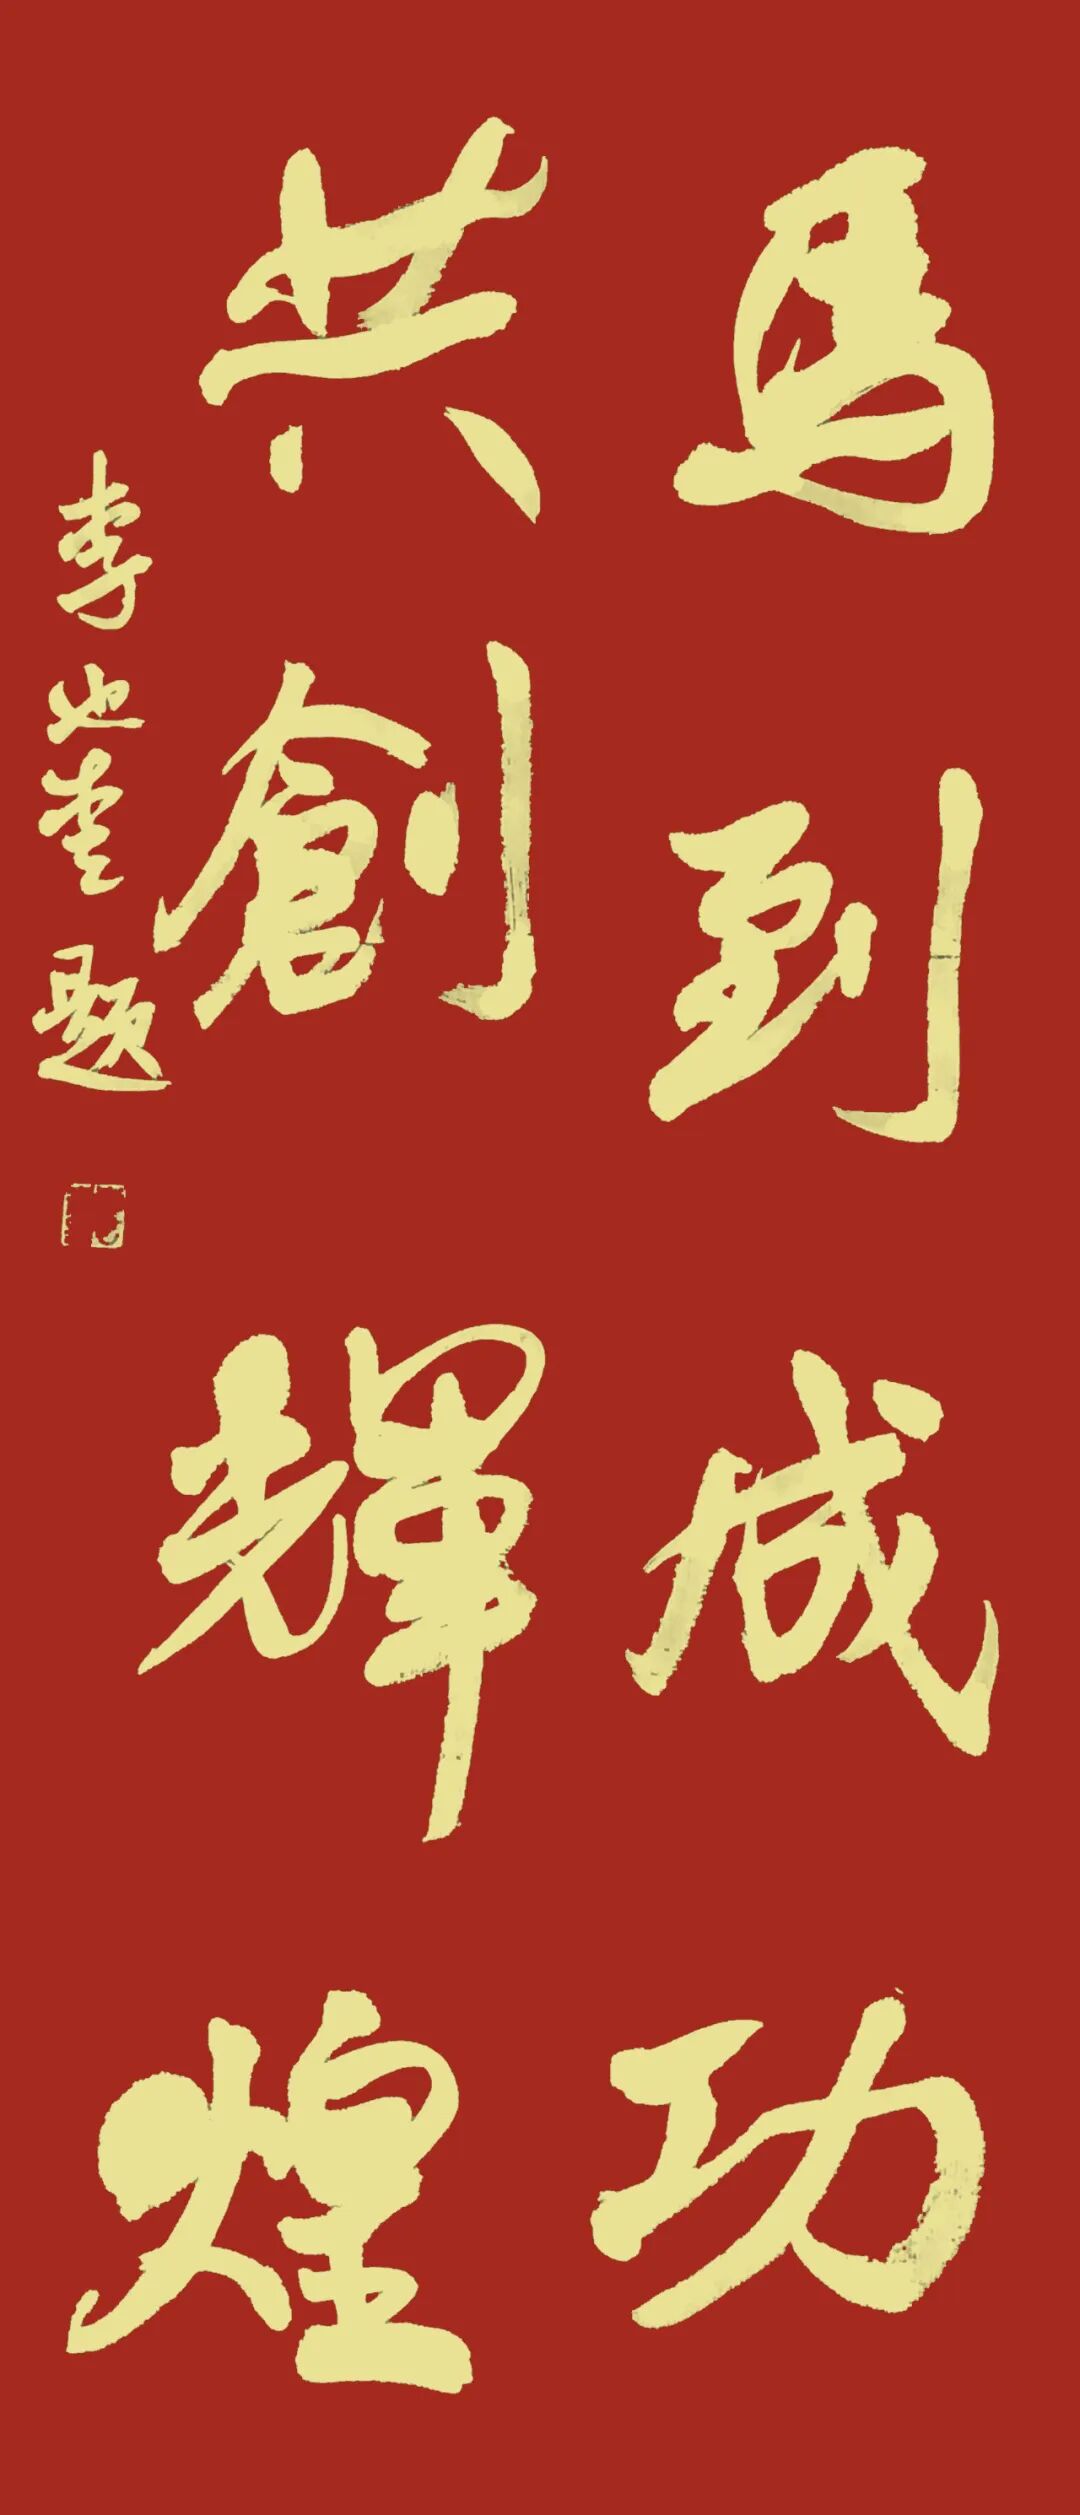 馬到成功
共創輝煌
李也奎題